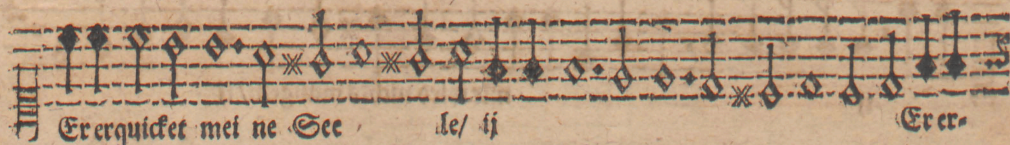 Er erquicket mei ne See le/ ij Er er⸗